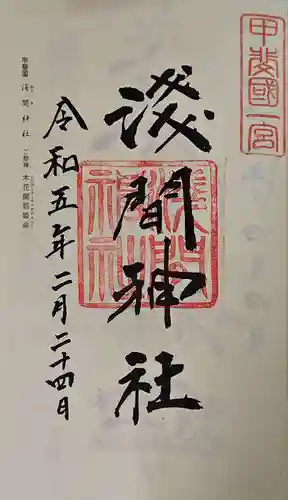 甲斐國一宮
淺間神社
淺間神社
令和五年二月二十四日
甲斐國 淺間神社 ご祭神 木花開耶姫命